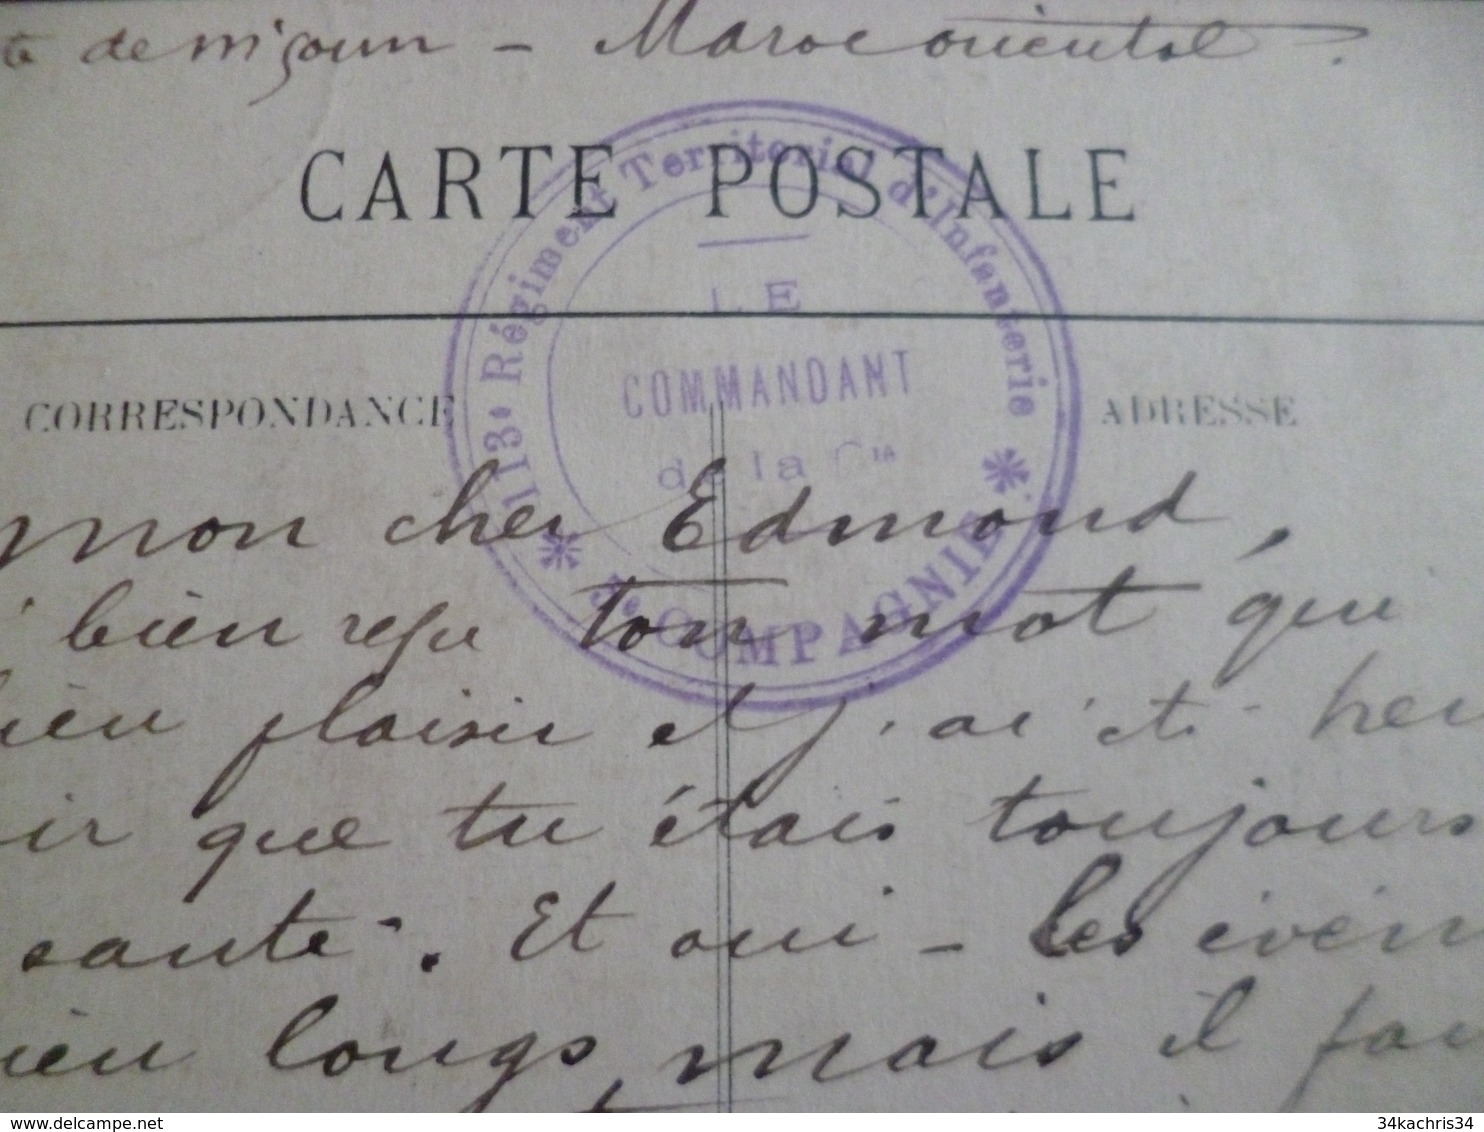 te de M'çoun - Maroc oriental.
CARTE POSTALE
113e Régiment Territorial d'Infanterie
LE
COMMANDANT
de la Cie
5e COMPAGNIE
CORRESPONDANCE
ADRESSE
mon cher Edmond,
bien reçu ton mot qui
bien plaisir et j'ai été heu
ir que tu étais toujours
santé. Et oui - les évén
ien longs, mais il fau
delcampe.net
34kachris34